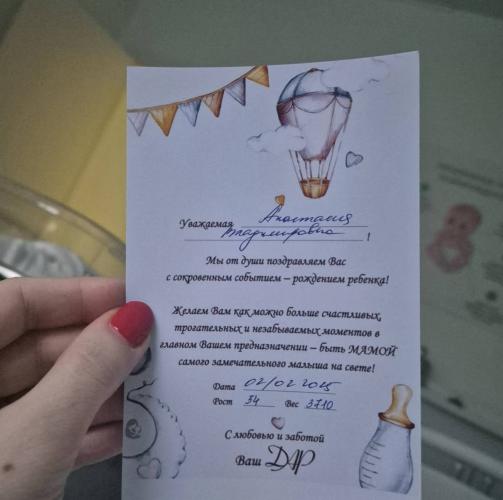 Уважаемая Анастасия
Владимировна !
Мы от души поздравляем Вас
с сокровенным событием – рождением ребенка!
Желаем Вам как можно больше счастливых,
трогательных и незабываемых моментов в
главном Вашем предназначении – быть МАМОЙ
самого замечательного малыша на свете!
Дата 02/02 2025
Рост 54 Вес 3710
С любовью и заботой
Ваш ДАР